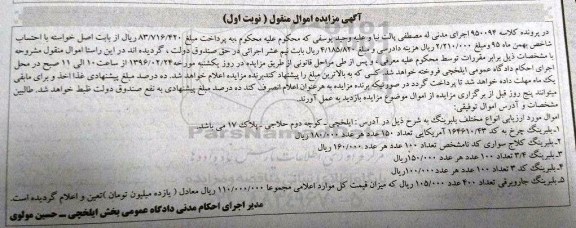 آگهی مزایده اموال منقول ( نوبت اول)
در پرونده کلاسه ۹۵۰۰۹۴ اجرای مدنی له مصطفی پالت نیا و علیه وحید یوسفی که محکوم علیه محکوم به پرداخت مبلغ ۸۳/۷۱۶/۴۲۰ ریال از بابت اصل خواسته با احتساب
شاخص بهمن ماه ۹۵ ومبلغ ۲/۲۱۰/۰۰۰ ریال هزینه دادرسی و مبلغ ۴/۱۸۵/۸۲۰ ریال بابت نیم عشر اجرائی در حق صندوق دولت ، گردیده اند در این راستا اموال منقول مشروحه
با مشخصات ذیل برابر مقررات توسط محکوم علیه معرفی و پس از طی مراحل قانونی از طریق مزایده در روز یکشنبه مورخه ۱۳۹۶/۰۲/۲۴ از ساعت ۱۰ الی ۱۱ صبح در محل
اجرای احکام دادگاه عمومی ایلخچی فروخته خواهد شد کسی که به بالاترین مبلغ را پیشنهاد کند برنده مزایده اعلام خواهد شد. ده درصد مبلغ پیشنهادی فذا اخذ و برای مابقی
یک ماه مهلت داده خواهد شد تا پرداخت گردد در صورتیکه برنده مزایده به هر عنوان اعلام انصراف کند ده درصد مبلغ پیشنهادی به نفع صندوق دولت ظبط خواهد شد. طالبین
میتوانند پنج روز قبل از برگزاری مزایده از اموال موضوع مزایده بازدید به عمل آورند.
مشخصات و آدرس اموال توقیفی:
اموال مورد ارزیابی انواع مختلف بلبرینگ به شرح ذیل در آدرس : ایلخچی ـ کوچه دوم حلاجی ـ پلاک ۱۷ می باشد.
۱ـ بلبرینگ چرخ به کد ۱۶۴۶۱۰/۴۳ آمریکایی تعداد ۱۵۰ عدد هر عدد ۱۸۰/۰۰۰ ریال
۲ـ بلبرینگ کلاج سواری کد نامشخص تعداد ۱۰۰ عدد هر عدد ۱۶۰/۰۰۰ ریال
۳ـ بلبرینگ ۳/۴ تعداد ۱۰۰ عدد هر عدد ۱۵۰/۰۰۰ریال
۴ـ بلبرینگ کد ۳ تعداد ۴۰۰ عدد هر عدد ۱۰۰/۰۰۰ریال
۵ـ بلبرینگ جاروبرقی تعداد ۴۰۰ عدد ۱۰۵/۰۰۰ ریال که میزان قیمت کل موارد اعلامی مجموعا ۱۱۰/۰۰۰/۰۰۰ ریال معادل ( یازده میلیون تومان )تعین و اعلام گردیده است.
مدیر اجرای احکام مدنی دادگاه عمومی بخش ایلخچی ـ حسین مولوی